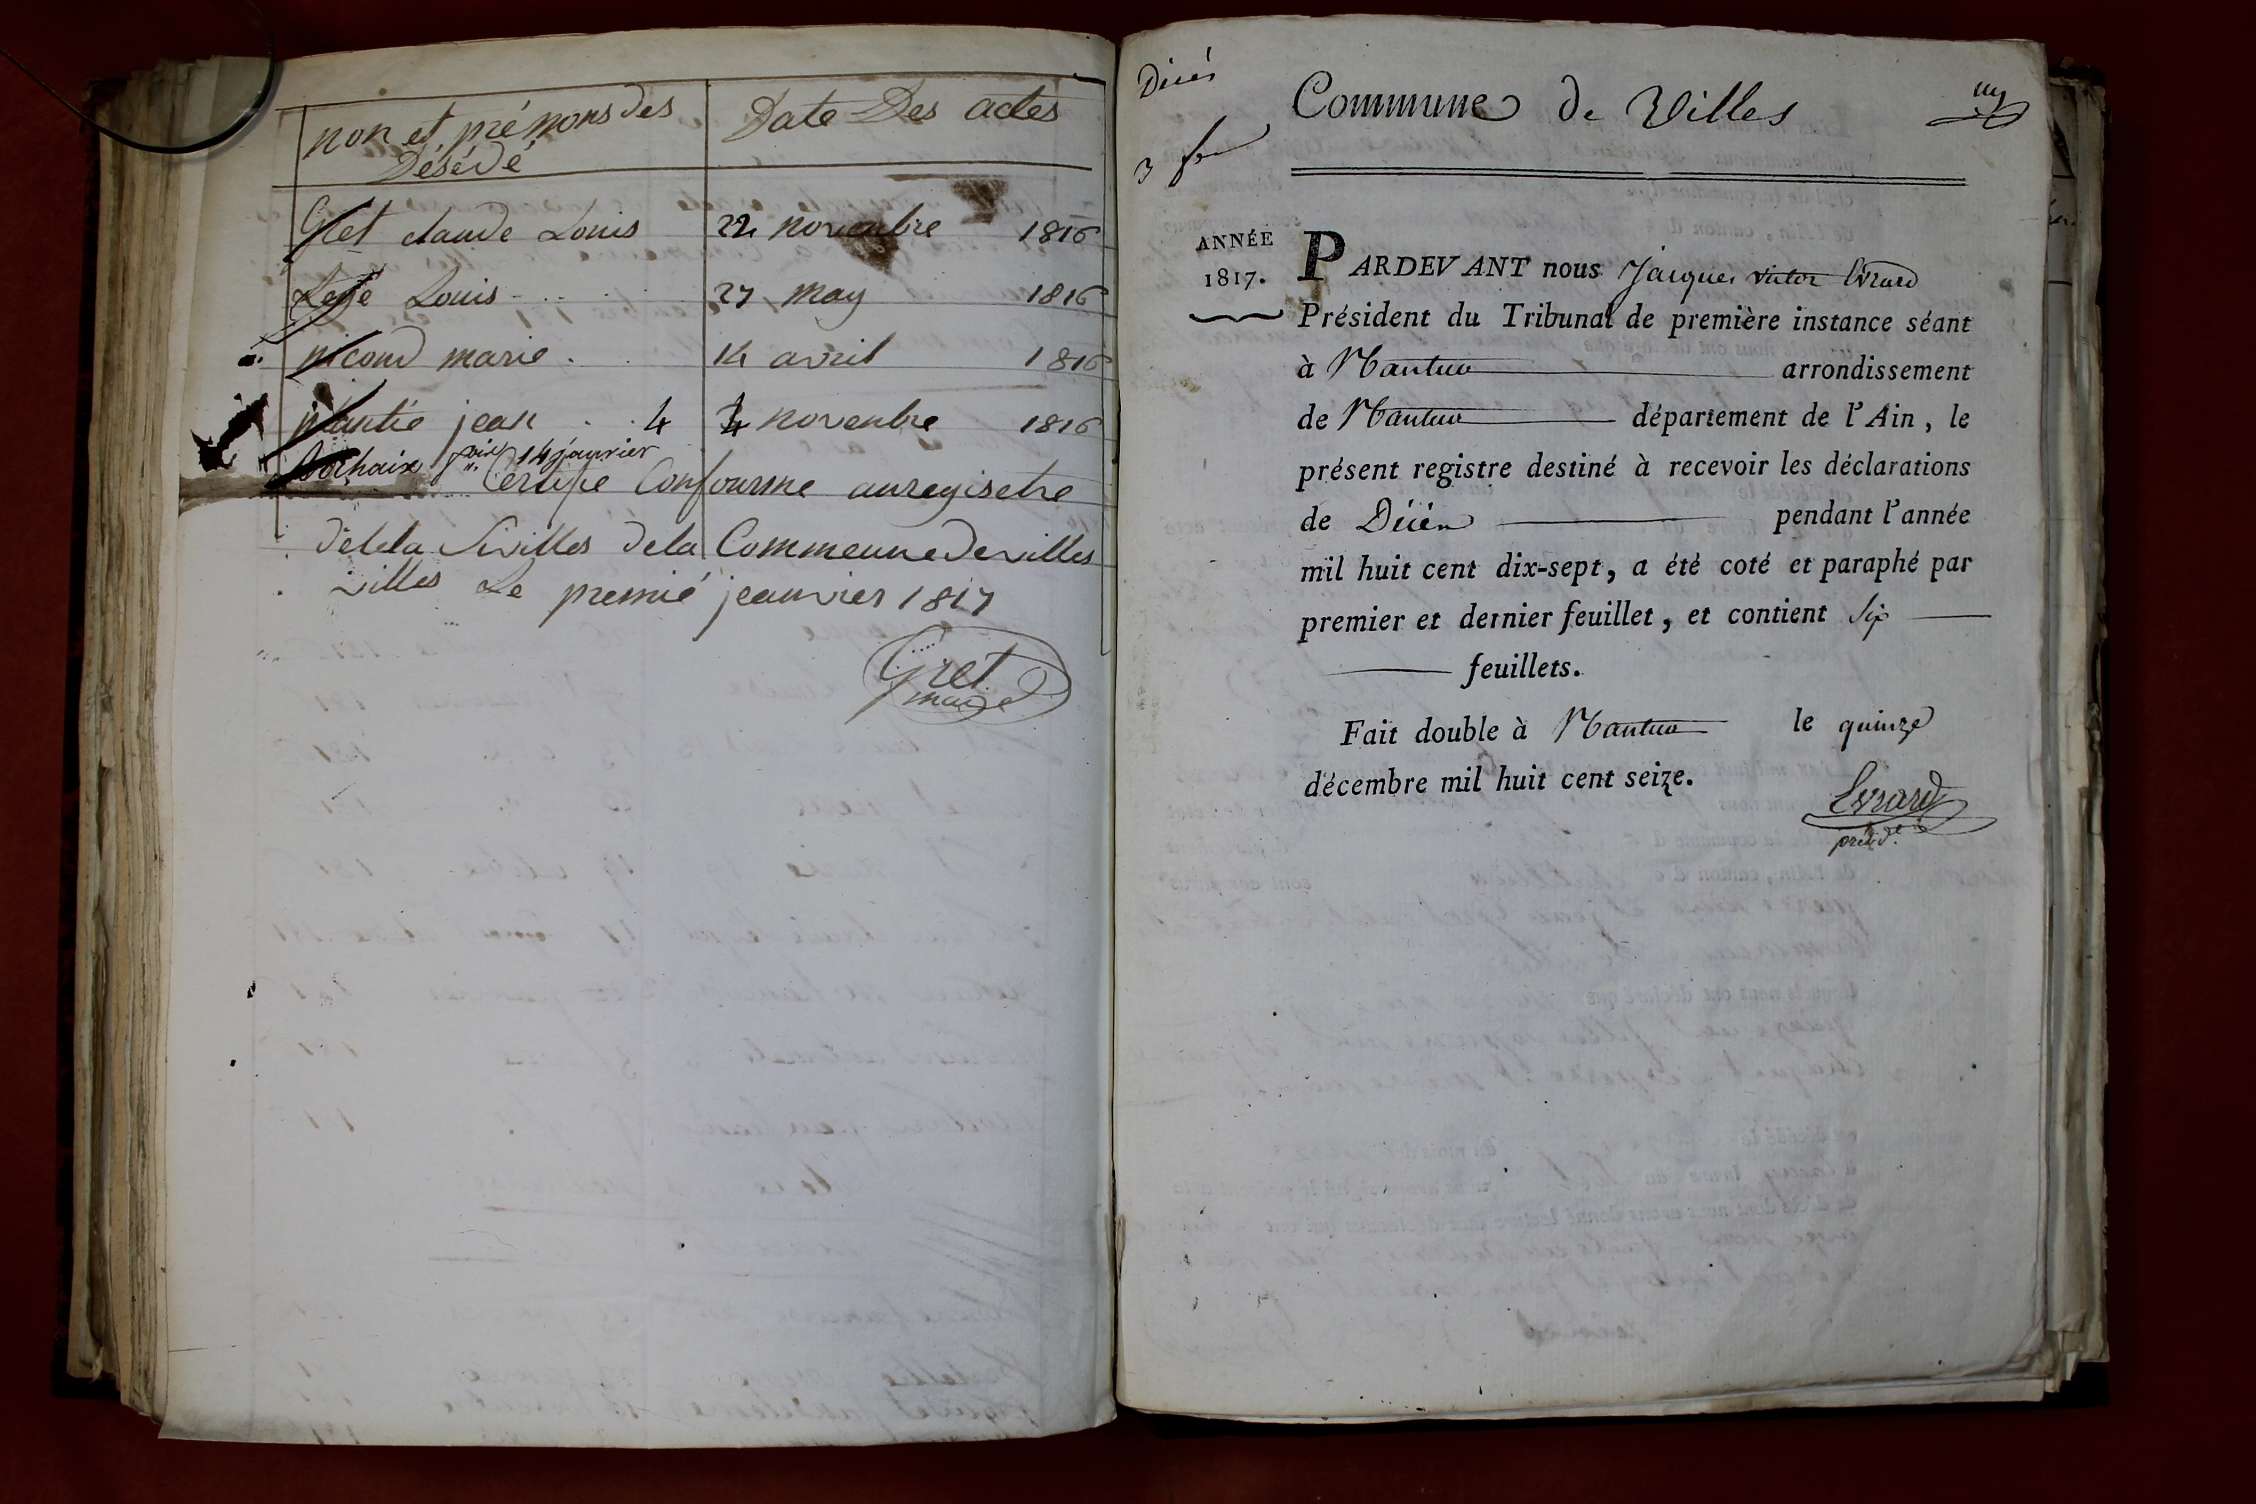 non et prénons des
Désédé
Date Des actes
Gret claude Louis 22 novenbre 1816
Louis 27 may 1816
nicoud marie 14 avril 1816
jean 4 4 novenbre 1816
Bochaix 14 janvier
Certifie Confourme auregisetre
deleta Sivilles dela Commeune de villes
villes Le premié jeanvier 1817
Gret
maire
Décés
3 fr
Commune de Villes
ANNÉE
1817.
PARDEVANT nous Jacques victor Evrard
Président du Tribunal de première instance séant
à Nantua arrondissement
de Nantua département de l'Ain, le
présent registre destiné à recevoir les déclarations
de Décès pendant l'année
mil huit cent dix-sept, a été coté et paraphé par
premier et dernier feuillet, et contient Six
feuillets.
Fait double à Nantua le quinze
décembre mil huit cent seize.
Evrard
présid.